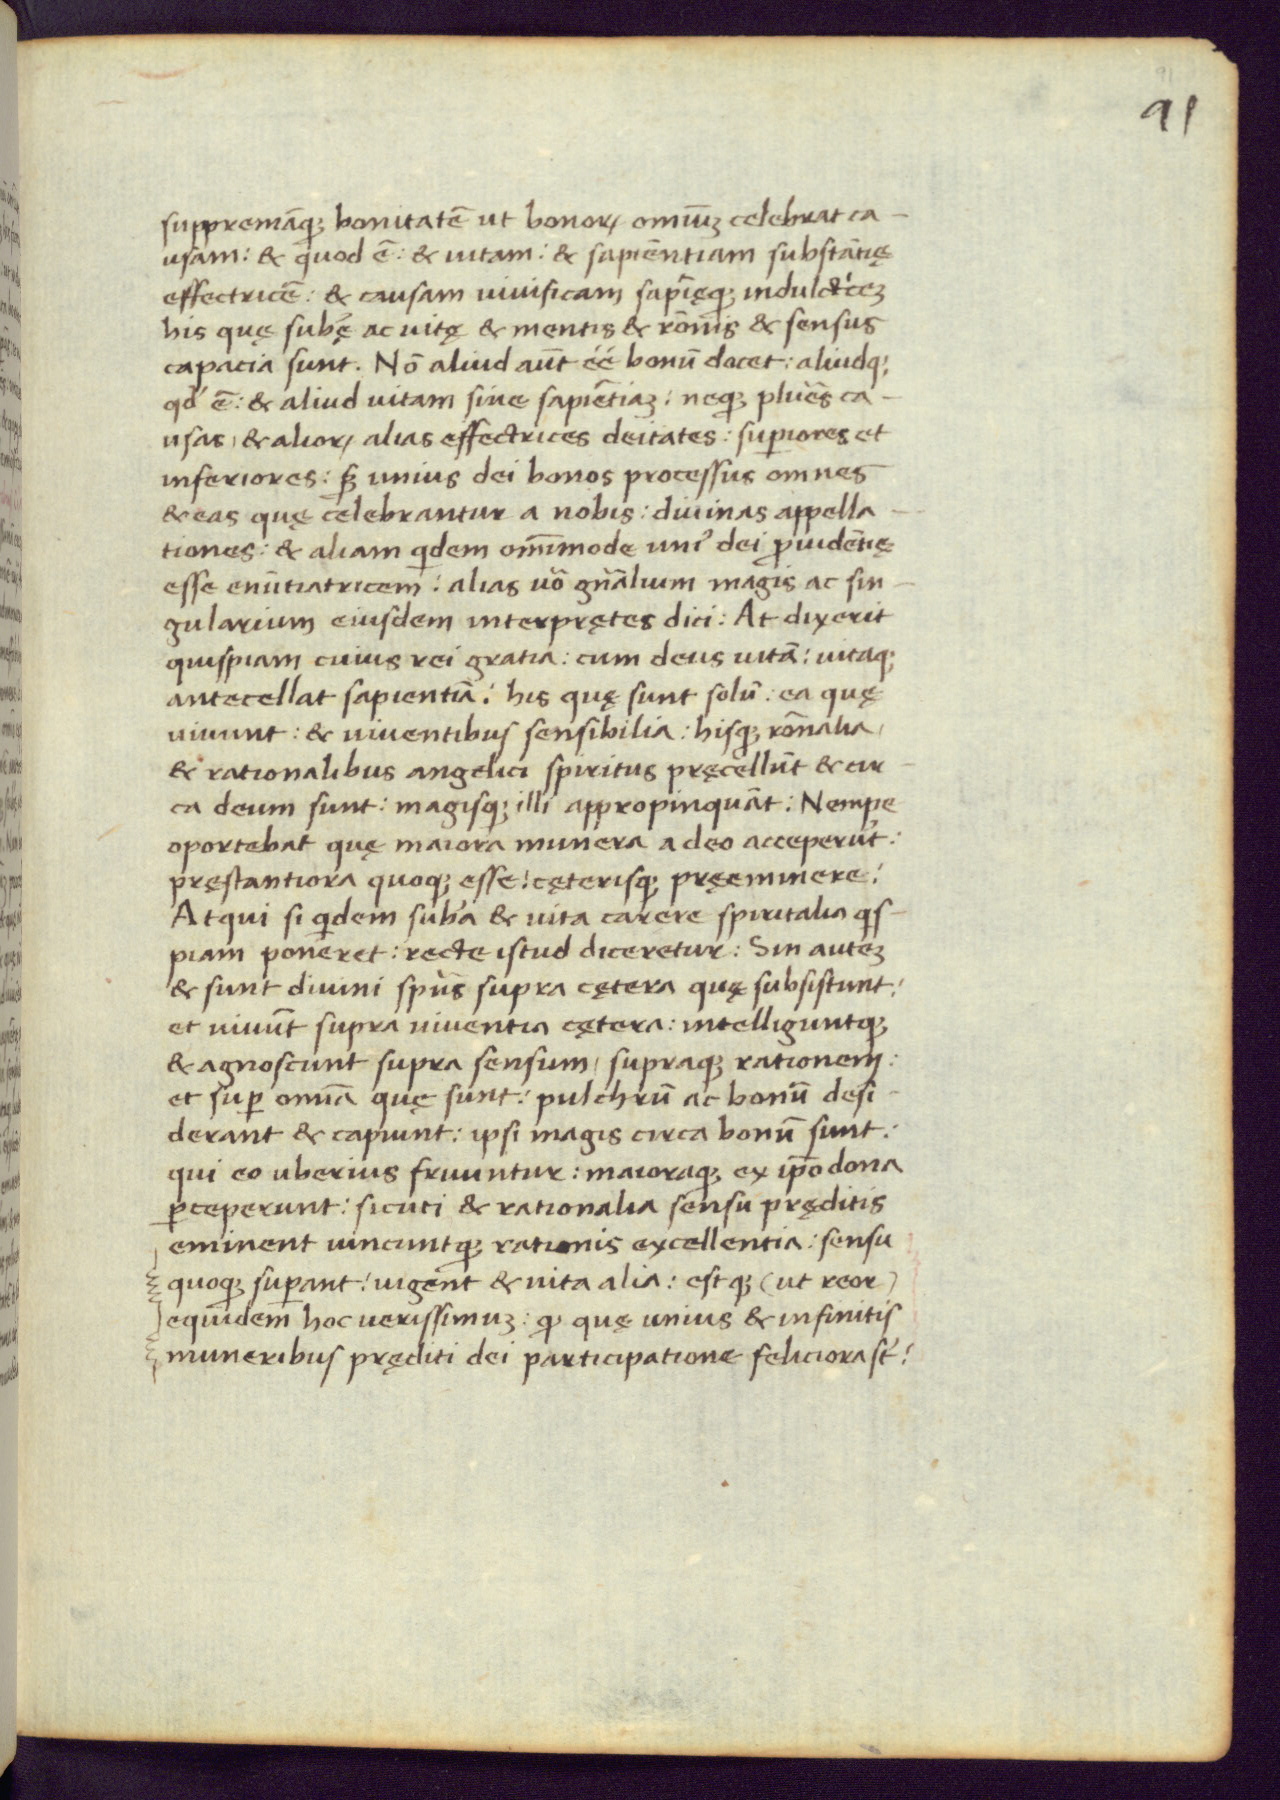 91
suppremāq; bonitatē ut bonoꝝ omiūꝫ celebrat ca-
usam: & quod ē: & uitam: & sapientiam substātię
effectricē: & causam uiuificam sapīęq; indultricēꝫ
his quę subę̄ ac uitę & mentis & rōnis & sensus
capacia sunt. Nō aliud aūt éé bonū docet: aliudq;
qd' ē: & aliud uitam siue sapiētiaꝫ: neq; plurēs ca-
usas, & alioꝝ alias effectrices deitates: suꝑiores et
inferiores: sꝫ unius dei bonos processus omnes
& eas quę celebrantur a nobis: diuinas appella-
tiones: & aliam qdem omīmode uni' dei ꝓuidētię
esse enūtiatricem: alias uō gn̄alium magis ac sin-
gularium eiusdem interpręteṣ dici: At dixerit
quispiam cuius rei gratia: cum deus uitā: uitaq;
antecellat sapientiā: his quę sunt solū: ea quę
uiuunt: & uiuentibus sensibilia: hisq; rōnalia,
& rationalibus angelici spiritus pręcellūt & cir-
ca deum sunt: magisq; illi appropinquāt: Nempe
oportebat quę maiora munera a deo acceperūt:
pręstantiora quoq; esse: cęterisq; pręeminere:
Atqui si qdem subā & uita carere spiritalia qs-
piam poneret: recte istud diceretur: Sin auteꝫ
& sunt diuini spūs supra cętera quę subsistunt:
et uiuūt supra uiuentia cętera: intelliguntq;
& agnoscunt supra sensum, supraq; rationem:
et suꝑ omīa quę sunt: pulchrū ac bonū desi-
derant & capiunt: ipsi magis circa bonū sunt:
qui eo uberius fruuntur: maioraq; ex ip̄o dona
ꝑceperunt: sicuti & rationalia sensu pręditis
eminent uincuntq; rationis excellentia: sensu
quoq; suꝑant: uigent & uita alia: estq; (ut reor)
equidem hoc uerissimuꝫ: ꝙ quę unius & infinitis
muneribus pręditi dei participatione feliciora st̄: